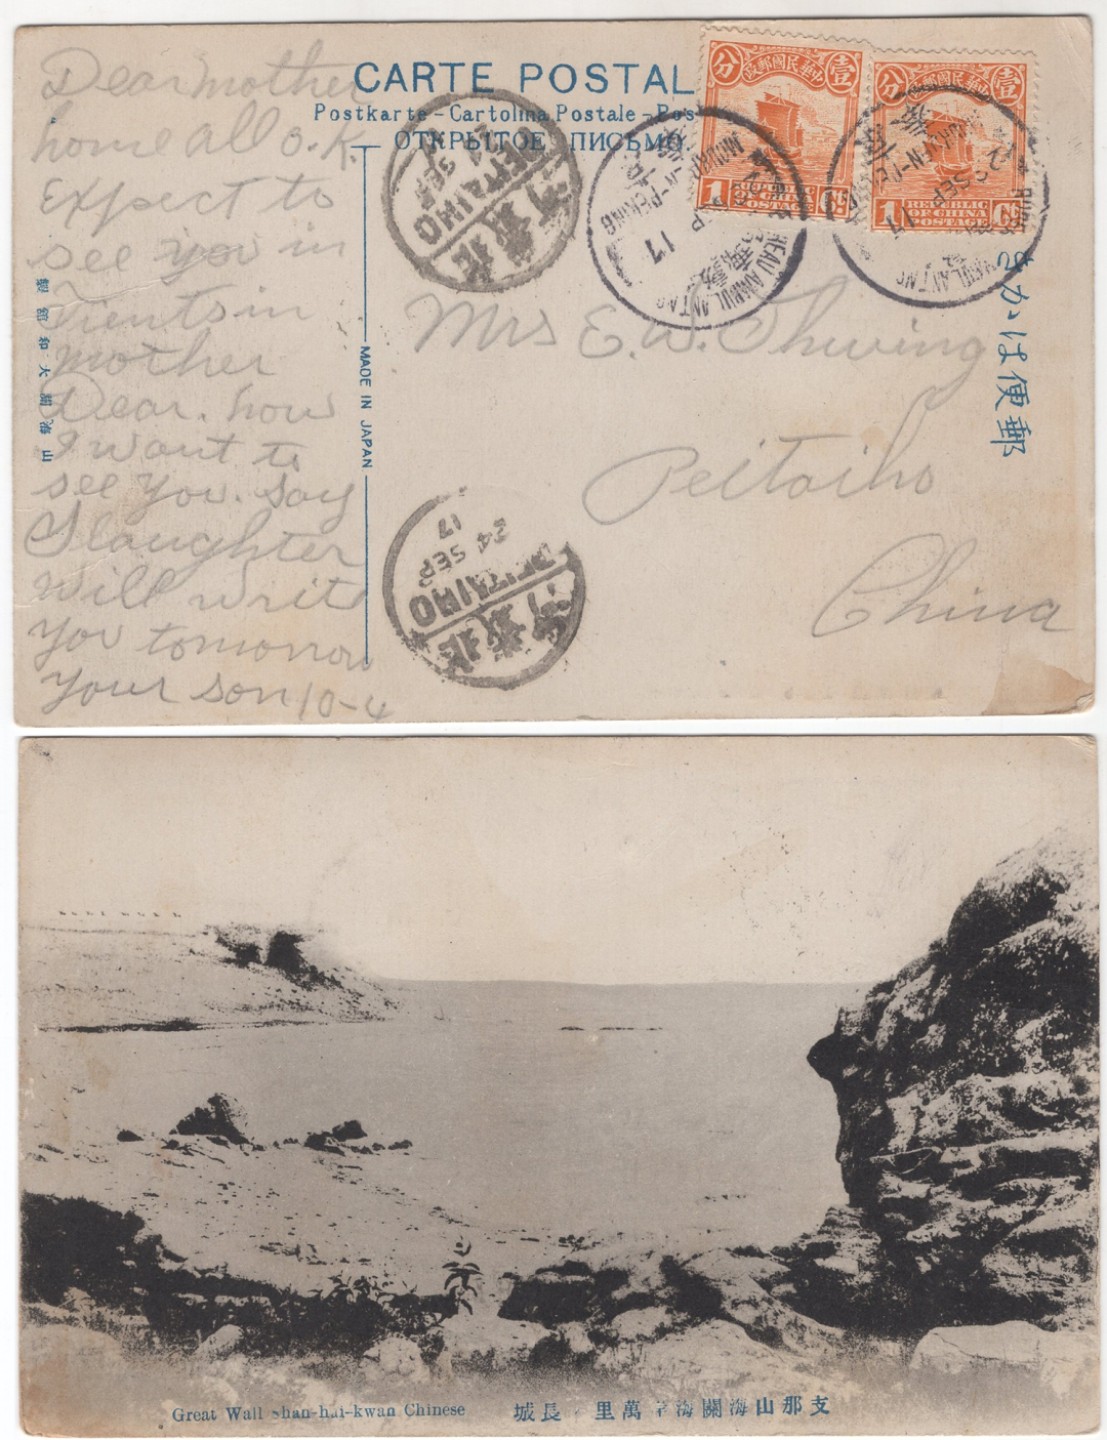 CARTE POSTAL
Postkarte-Cartolina Postale-Pos
ОТКРЫТОЕ ПИСЬМО
きかは便郵
MADE IN JAPAN
山海關大和館製
Dear mother
home all o.k.
expect to
see you in
Tientsin
mother
Dear. how
I want to
see you. say
Slaughter
will write
you tomorrow
your son 10-4
Mrs E. W. Thwing
Peitaiho
China
中華民國郵政
壹
分
1
REPUBLIC
OF CHINA
POSTAGE
1
Ct.
中華民國郵政
壹
分
1
REPUBLIC
OF CHINA
POSTAGE
1
Ct.
SEP
17
SEP
17
北戴河
PEITAIHO
SEP
北戴河
PEITAIHO
24 SEP
17
Great Wall shan-hai-kwan Chinese
支那山海關海岸萬里ノ長城